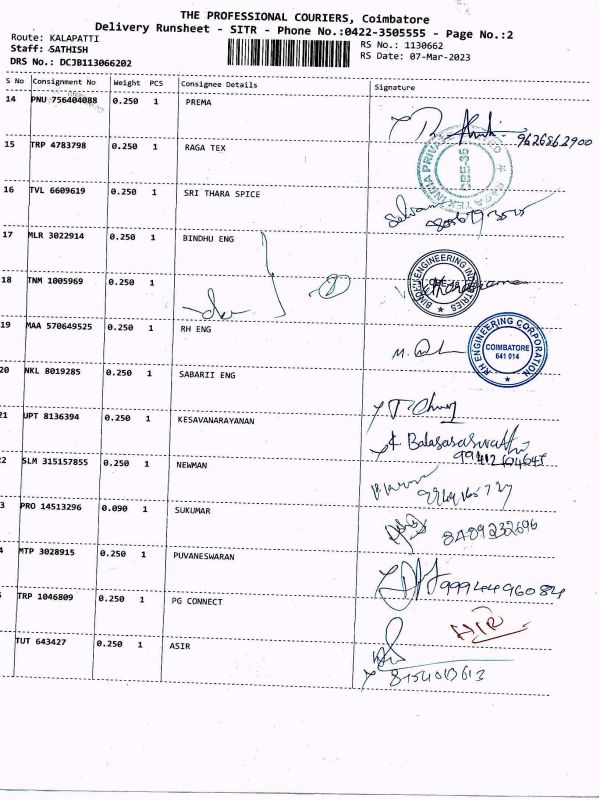 THE PROFESSIONAL COURIERS, Coimbatore
Delivery Runsheet - SITR - Phone No.:0422-3505555 - Page No.:2
Route: KALAPATTI
Staff: SATHISH
DRS No.: DCJB113066202
RS No.: 1130662
RS Date: 07-Mar-2023
S No Consignment No Weight PCS Consignee Details Signature
14 PNU 756404088 0.250 1 PREMA
9626862900
15 TRP 4783798 0.250 1 RAGA TEX
RAGA TEX INDIA PRIVATE LIMITED
CBE-35
16 TVL 6609619 0.250 1 SRI THARA SPICE
Selvam
17 MLR 3022914 0.250 1 BINDHU ENG
BINDHU ENGINEERING INDUSTRIES
18 TNM 1005969 0.250 1
19 MAA 570649525 0.250 1 RH ENG
RH ENGINEERING CORPORATION
COIMBATORE
641 014
20 NKL 8019285 0.250 1 SABARII ENG
21 UPT 8136394 0.250 1 KESAVANARAYANAN
Balasaraswathi
2 SLM 315157855 0.250 1 NEWMAN
3 PRO 14513296 0.090 1 SUKUMAR
8489232696
4 MTP 3028915 0.250 1 PUVANESWARAN
9994496084
TRP 1046809 0.250 1 PG CONNECT
AIR
TUT 643427 0.250 1 ASIR
8154013613